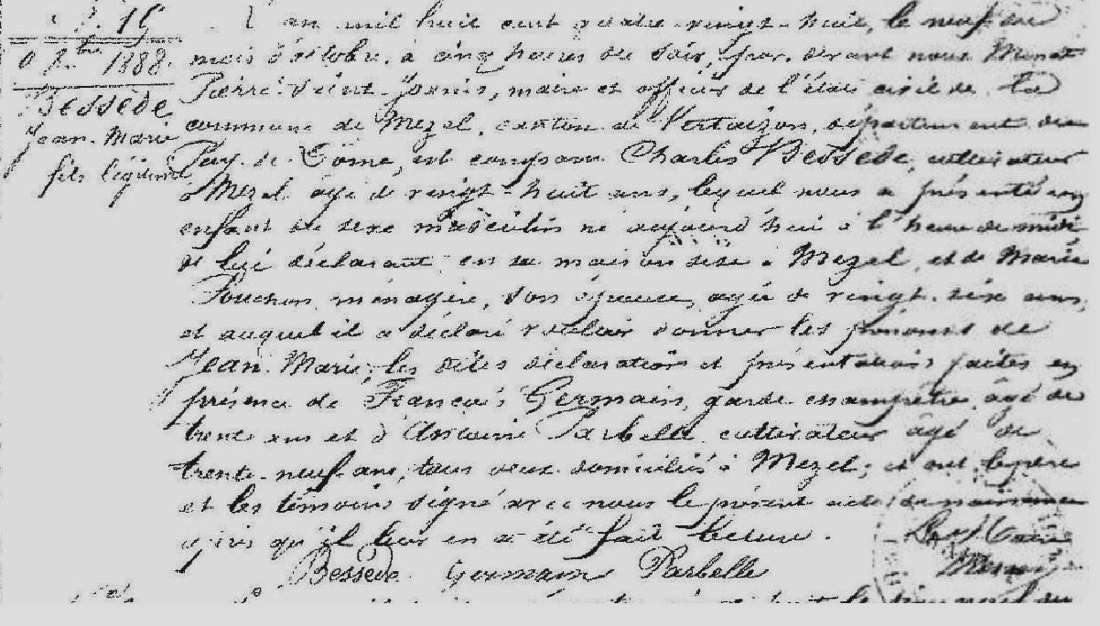 19
1888.
Bessède
Jean-Marie
fils légitime
L'an mil huit cent quatre-vingt-huit, le neuf du
mois d'octobre à cinq heures du soir, par devant nous
Pierre Saint-Joanis, maire et officier de l'état civil de la
commune de Mezel, canton de Vertaizon, département du
Puy-de-Dôme, est comparu Charles Bessède, cultivateur
à Mezel âgé de vingt-huit ans, lequel nous a présenté un
enfant de sexe masculin né aujourd'hui à l'heure de midi
de lui déclarant en sa maison sise à Mezel, et de Marie
Fouchon, ménagère, son épouse, âgée de vingt-six ans,
et auquel il a déclaré vouloir donner les prénoms de
Jean-Marie; les dites déclaration et présentation faites en
présence de François Germain, garde champêtre, âgé de
trente ans et d'Antoine Parbelle cultivateur âgé de
trente-neuf ans, tous deux domiciliés à Mezel; et ont le père
et les témoins signé avec nous le présent acte de naissance
après qu'il leur en a été fait lecture.
Le Maire
Bessède Germain Parbelle